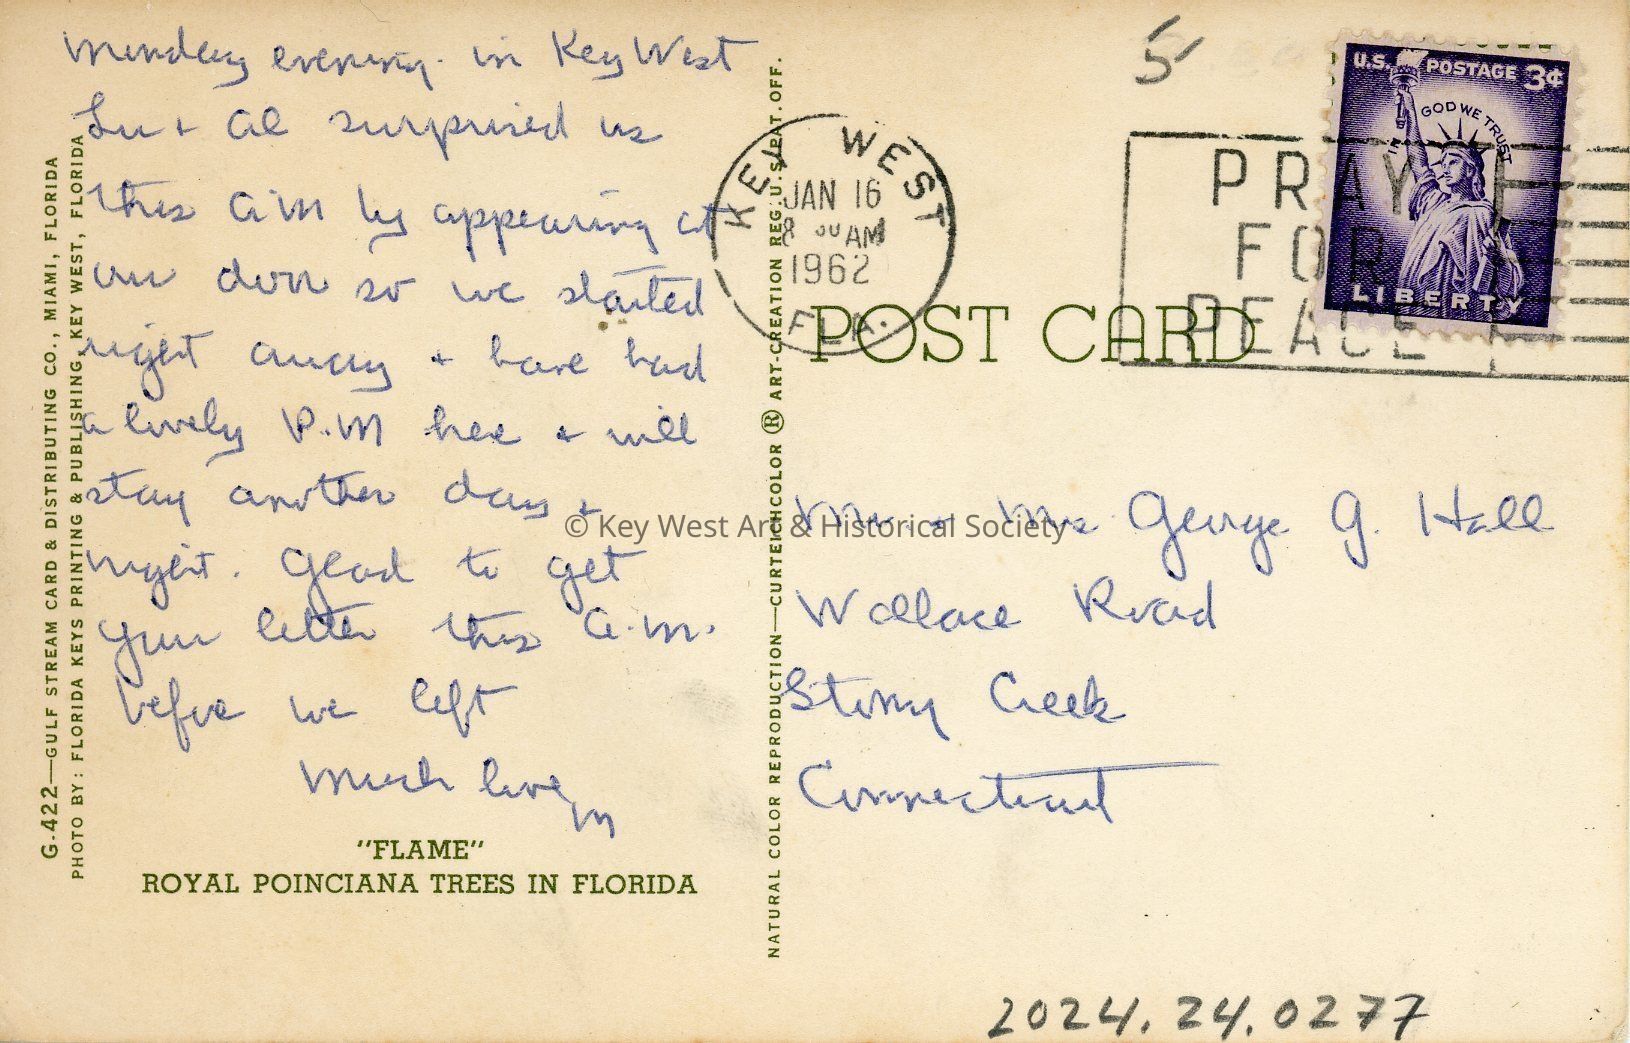 Monday evening in Key West
Lu + Al surprised us
this A.M by appearing at
our door so we started
right away + have had
a lovely P.M here + will
stay another day +
night. Glad to get
your letter this A.M.
before we left
Much love,
M
"FLAME"
ROYAL POINCIANA TREES IN FLORIDA
G-422—GULF STREAM CARD & DISTRIBUTING CO., MIAMI, FLORIDA
PHOTO BY: FLORIDA KEYS PRINTING & PUBLISHING, KEY WEST, FLORIDA
NATURAL COLOR REPRODUCTION—CURTEICHCOLOR ® ART-CREATION REG. U.S. PAT. OFF.
5
KEY WEST
JAN 16
8 00 AM
1962
FLA.
PRAY
FOR
PEACE
U.S. POSTAGE 3¢
IN GOD WE TRUST
LIBERTY
POST CARD
Mr. + Mrs George G. Hall
Wallace Road
Stony Creek
Connecticut
© Key West Art & Historical Society
2024.24.0277